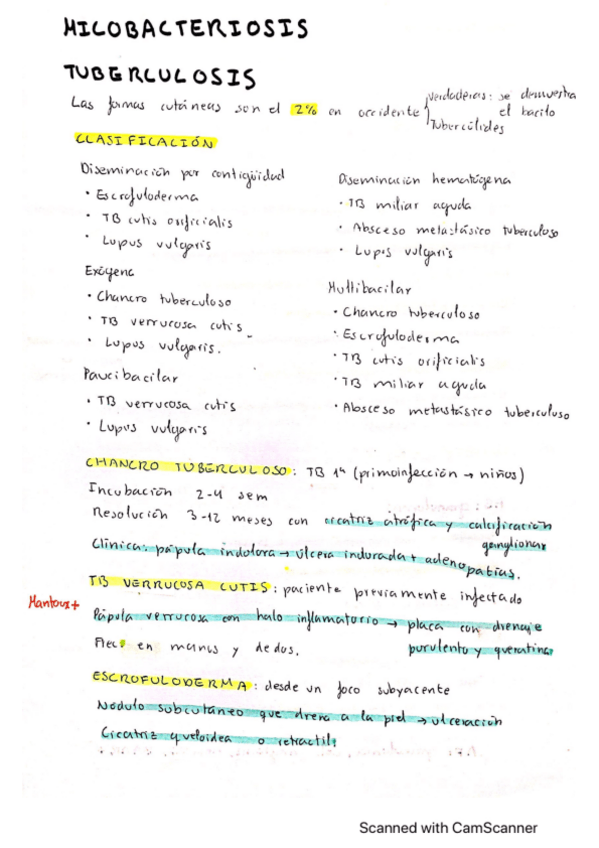 MICOBACTERIOSIS
TUBERCULOSIS
Las formas cutáneas son el 2% en occidente
verdaderas: se demuestra
el bacilo
Tubercúlides
CLASIFICACIÓN
Diseminación por contigüidad
• Escrofuloderma
• TB cutis orificialis
• Lupus vulgaris
Diseminación hematógena
• TB miliar aguda
• Absceso metastásico tuberculoso
• Lupus vulgaris
Exógena
• Chancro tuberculoso
• TB verrucosa cutis
• Lupus vulgaris.
Multibacilar
• Chancro tuberculoso
• Escrofuloderma
• TB cutis orificialis
• TB miliar aguda
• Absceso metastásico tuberculoso
Paucibacilar
• TB verrucosa cutis
• Lupus vulgaris
CHANCRO TUBERCULOSO: TB 1ª (primoinfección → niños)
Incubación 2-4 sem
Resolución 3-12 meses con cicatriz atrófica y calcificación
ganglionar
Clínica: pápula indolora → úlcera indurada + adenopatías.
TB VERRUCOSA CUTIS: paciente previamente infectado
Mantoux +
Pápula verrucosa con halo inflamatorio → placa con drenaje
purulento y queratina
Afec. en manos y dedos.
ESCROFULODERMA: desde un foco subyacente
Nódulo subcutáneo que drena a la piel → ulceración
Cicatriz queloidea o retractil
Scanned with CamScanner